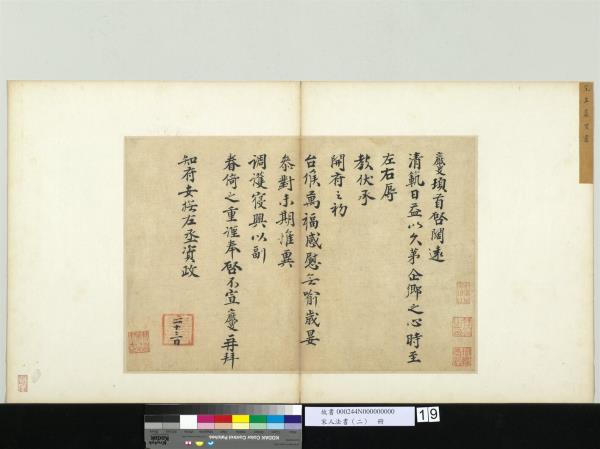 慶頓首啓闊遠
清範日益以久第企鄉之心時至
左右辱
教伏承
開府之初
台候萬福感慰無喻歲晏
參對未期惟冀
調護寢興以副
眷倚之重謹奉啓不宣慶再拜
知府安撫左丞資政
二十二日
故書 000244N000000000
宋人法書（二） 冊
19
KODAK Color Control Patches